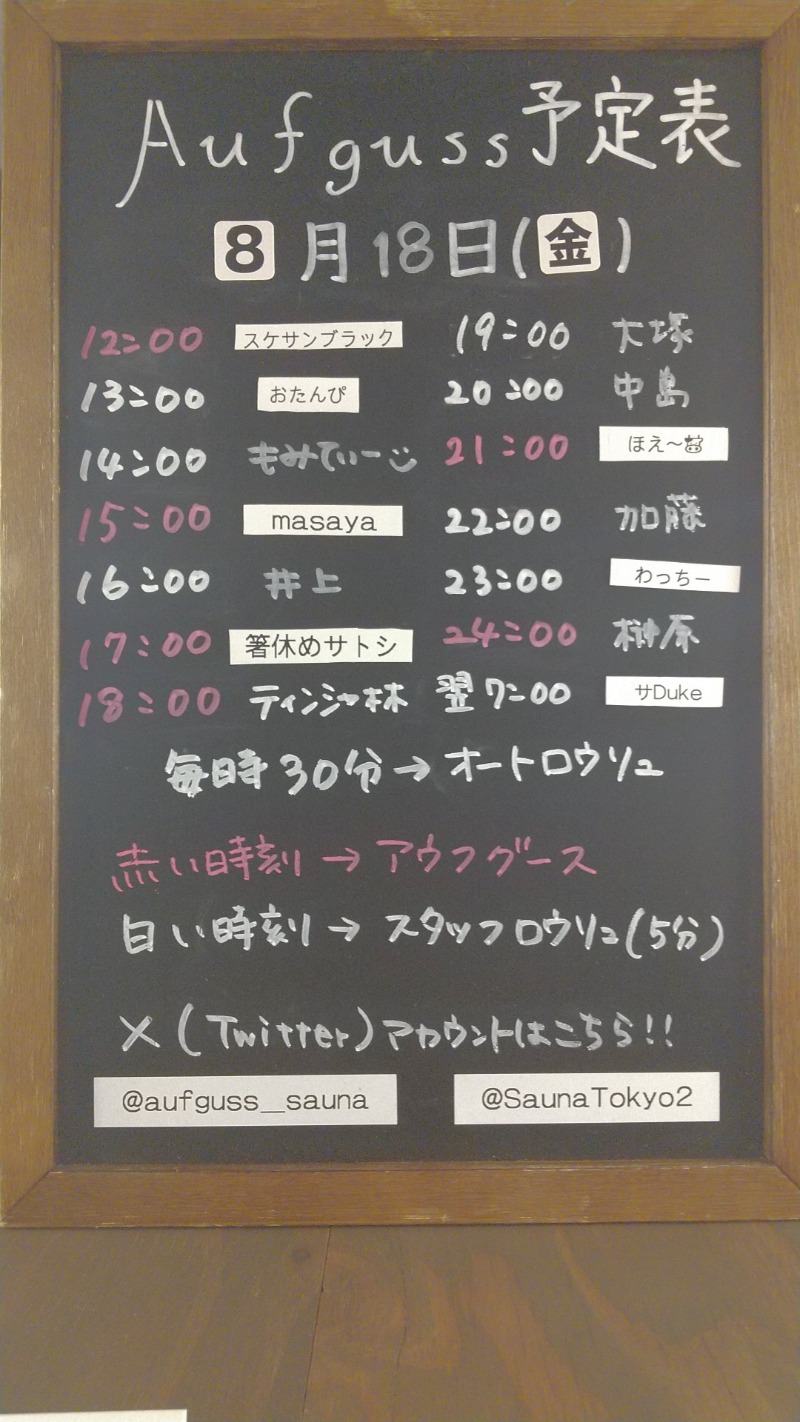 Aufguss予定表
8月18日(金)
12:00 スケサンブラック
13:00 おたんぴ
14:00 もみてぃー
15:00 masaya
16:00 井上
17:00 箸休めサトシ
18:00 ティンシャ林
19:00 大塚
20:00 中島
21:00 ほえ〜
22:00 加藤
23:00 わっちー
24:00 榊原
翌7:00 サDuke
毎時30分→オートロウリュ
赤い時刻→アウフグース
白い時刻→スタッフロウリュ(5分)
X(Twitter)アカウントはこちら!!
@aufguss__sauna
@SaunaTokyo2